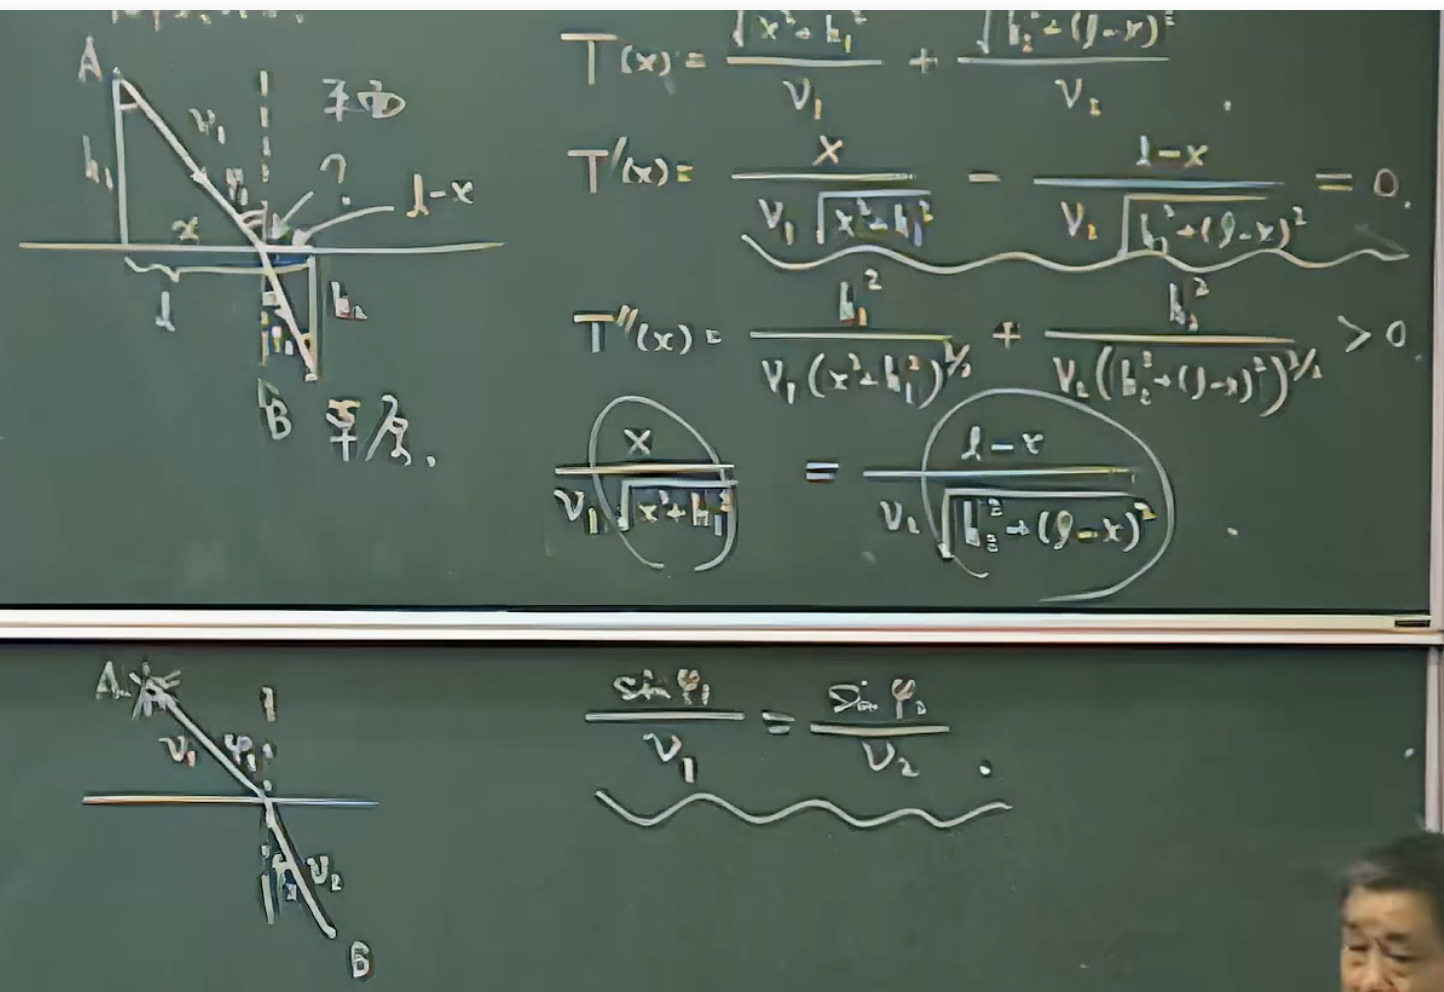 A
h₁
v₁
φ₁
平面
?
l-x
x
l
h₂
B
草原.
T(x) = √(x²+h₁²)/v₁ + √(h₂²+(l-x)²)/v₂ .
T'(x) = x/(v₁√(x²+h₁²)) - (l-x)/(v₂√(h₂²+(l-x)²)) = 0.
T''(x) = h₁²/(v₁(x²+h₁²)^(3/2)) + h₂²/(v₂(h₂²+(l-x)²)^(3/2)) > 0.
x/(v₁√(x²+h₁²)) = (l-x)/(v₂√(h₂²+(l-x)²)) .
A
v₁
φ₁
v₂
B
sin φ₁/v₁ = sin φ₂/v₂ .